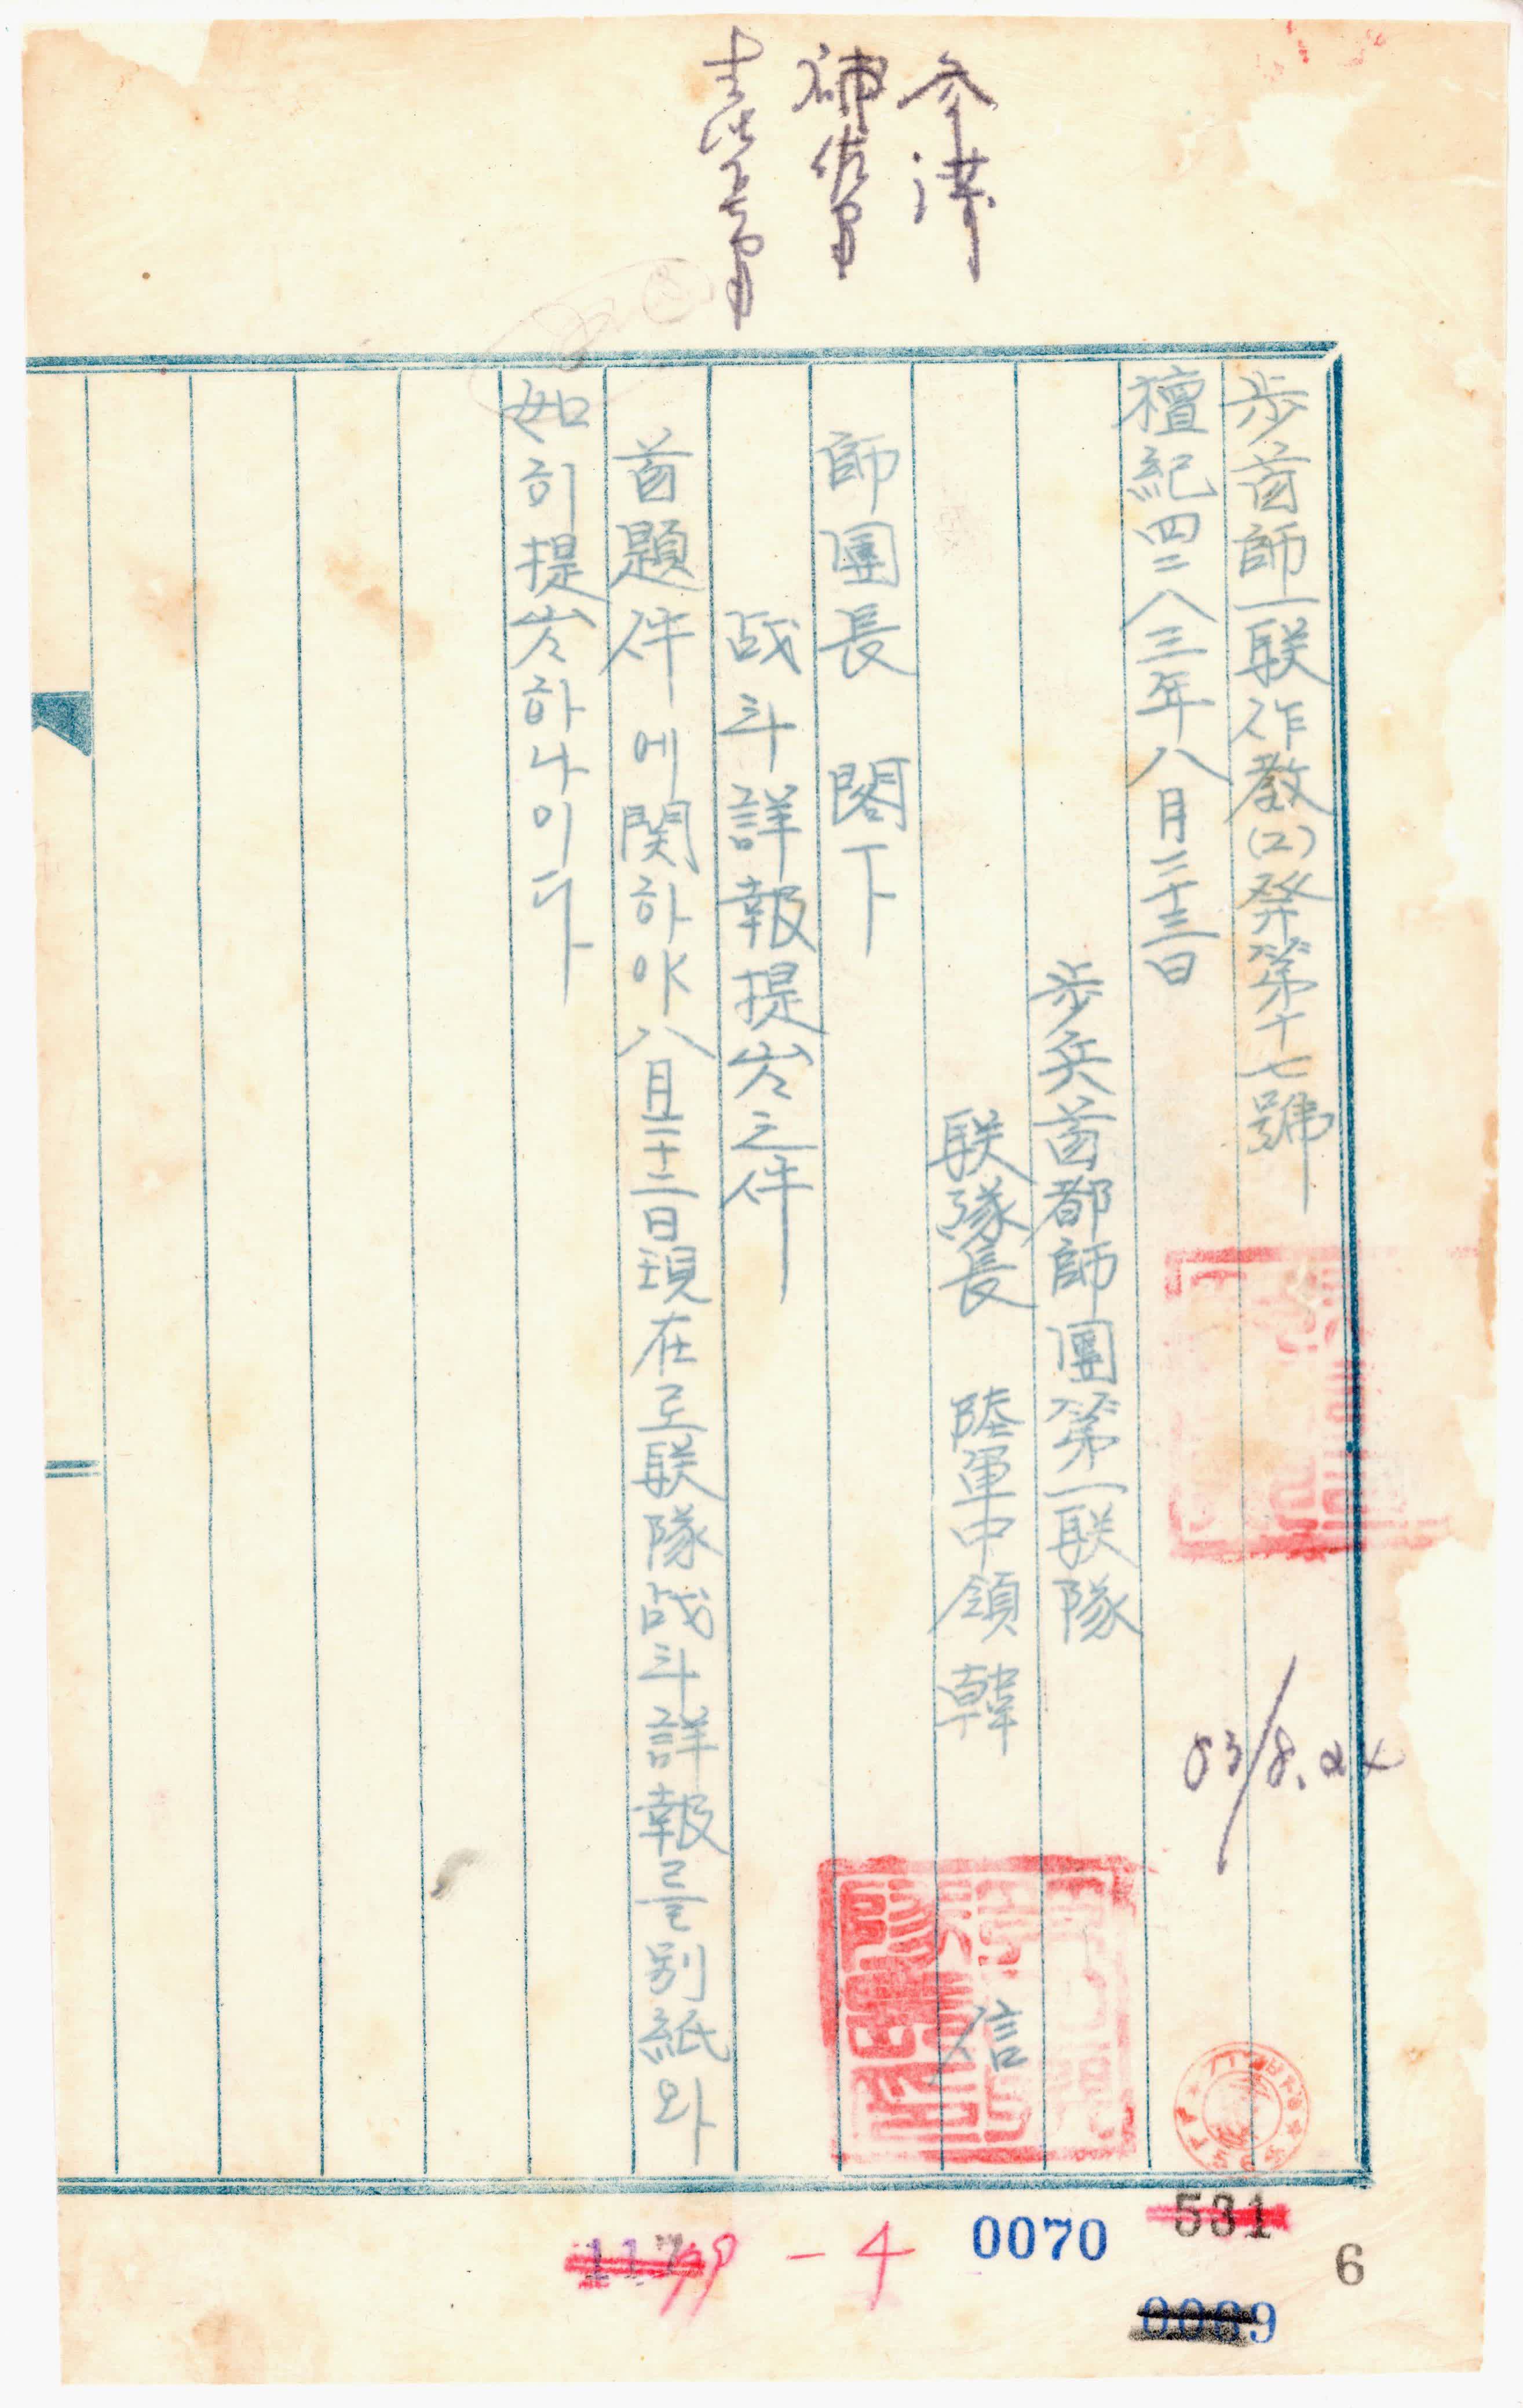 参謀
補佐官
步首師一联作教(2)発第十七號
檀紀四二八三年八月二十三日
步兵首都師團第一联隊
联隊長 陸軍中領 韓 信
師團長 閣下
战斗詳報提出之件
首題件에関하야八月二十二日現在로联隊战斗詳報를別紙와
如히提出하나이다
83/8.24
99-4
0070
531
6
0069
117